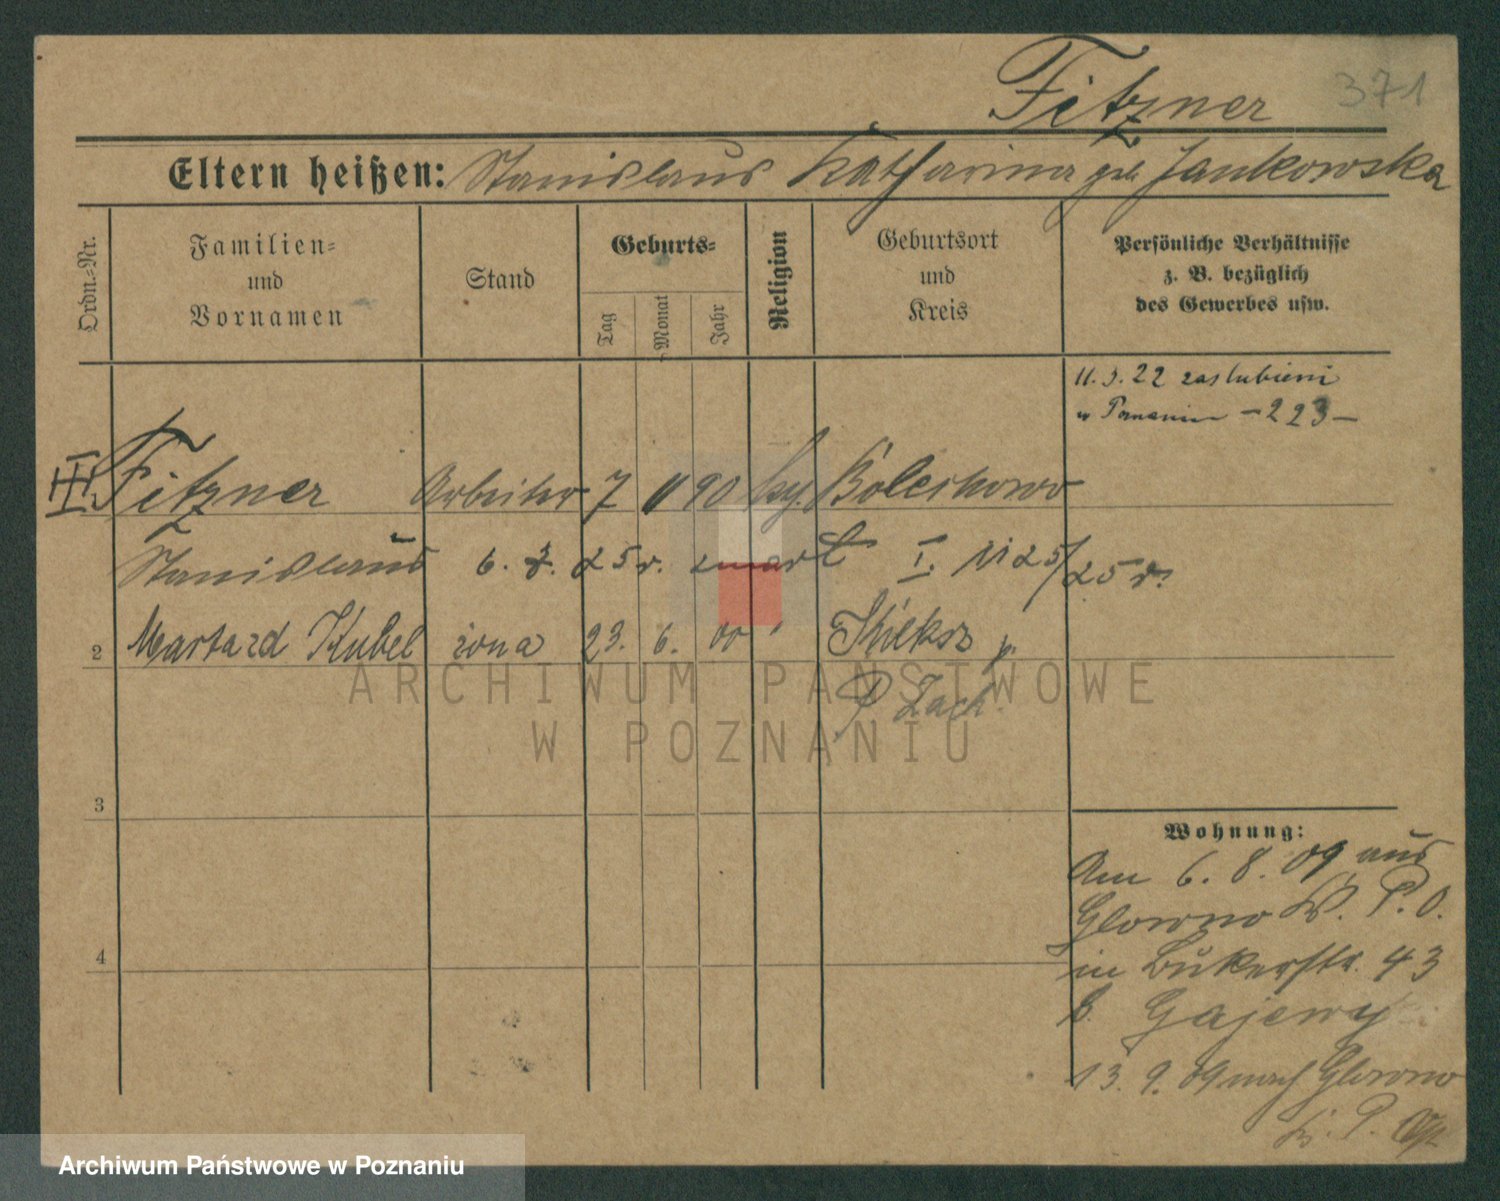 Fitzner 371
Eltern heißen: Stanislaus Katharina geb Jankowska
Ordn.-Nr.
Familien-
und
Vornamen
Stand
Geburts-
Tag
Monat
Jahr
Religion
Geburtsort
und
Kreis
Persönliche Verhältnisse
z. B. bezüglich
des Gewerbes usw.
11. 5. 22 zaslubieni
w Poznaniu - 223 -
III Fitzner Arbeiter 7 11 90
Stanislaus 6. 25 r. zmarł I. 25/25 r.
2 Kubel żona 23. 6. 00 "
P Zach.
3
4
Wohnung:
Am 6. 8. 09 aus
Glowno Kr. P. O.
in Bukerstr. 43
b. Gajewy
13. 9. 09 nach Glowno
Kr. P.
ARCHIWUM PAŃSTWOWE
W POZNANIU
Archiwum Państwowe w Poznaniu